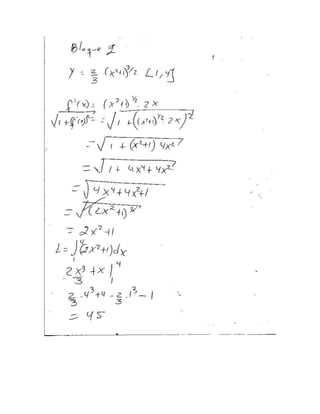 Bloque 1
y = 2/3 (x²+1)^3/2 [1,4]
f'(x) = (x²+1)^½ · 2x
√1 + f'(x)² = √1 + ((x²+1)^½ · 2x)²
= √1 + (x²+1) 4x²
= √1 + 4x⁴ + 4x²
= √4x⁴ + 4x² + 1
= √(2x² + 1)²
= 2x² + 1
L = ∫₁⁴ (2x²+1) dx
2x³/3 + x |₁⁴
2/3 · 4³ + 4 - 2/3 · 1³ - 1
= 45